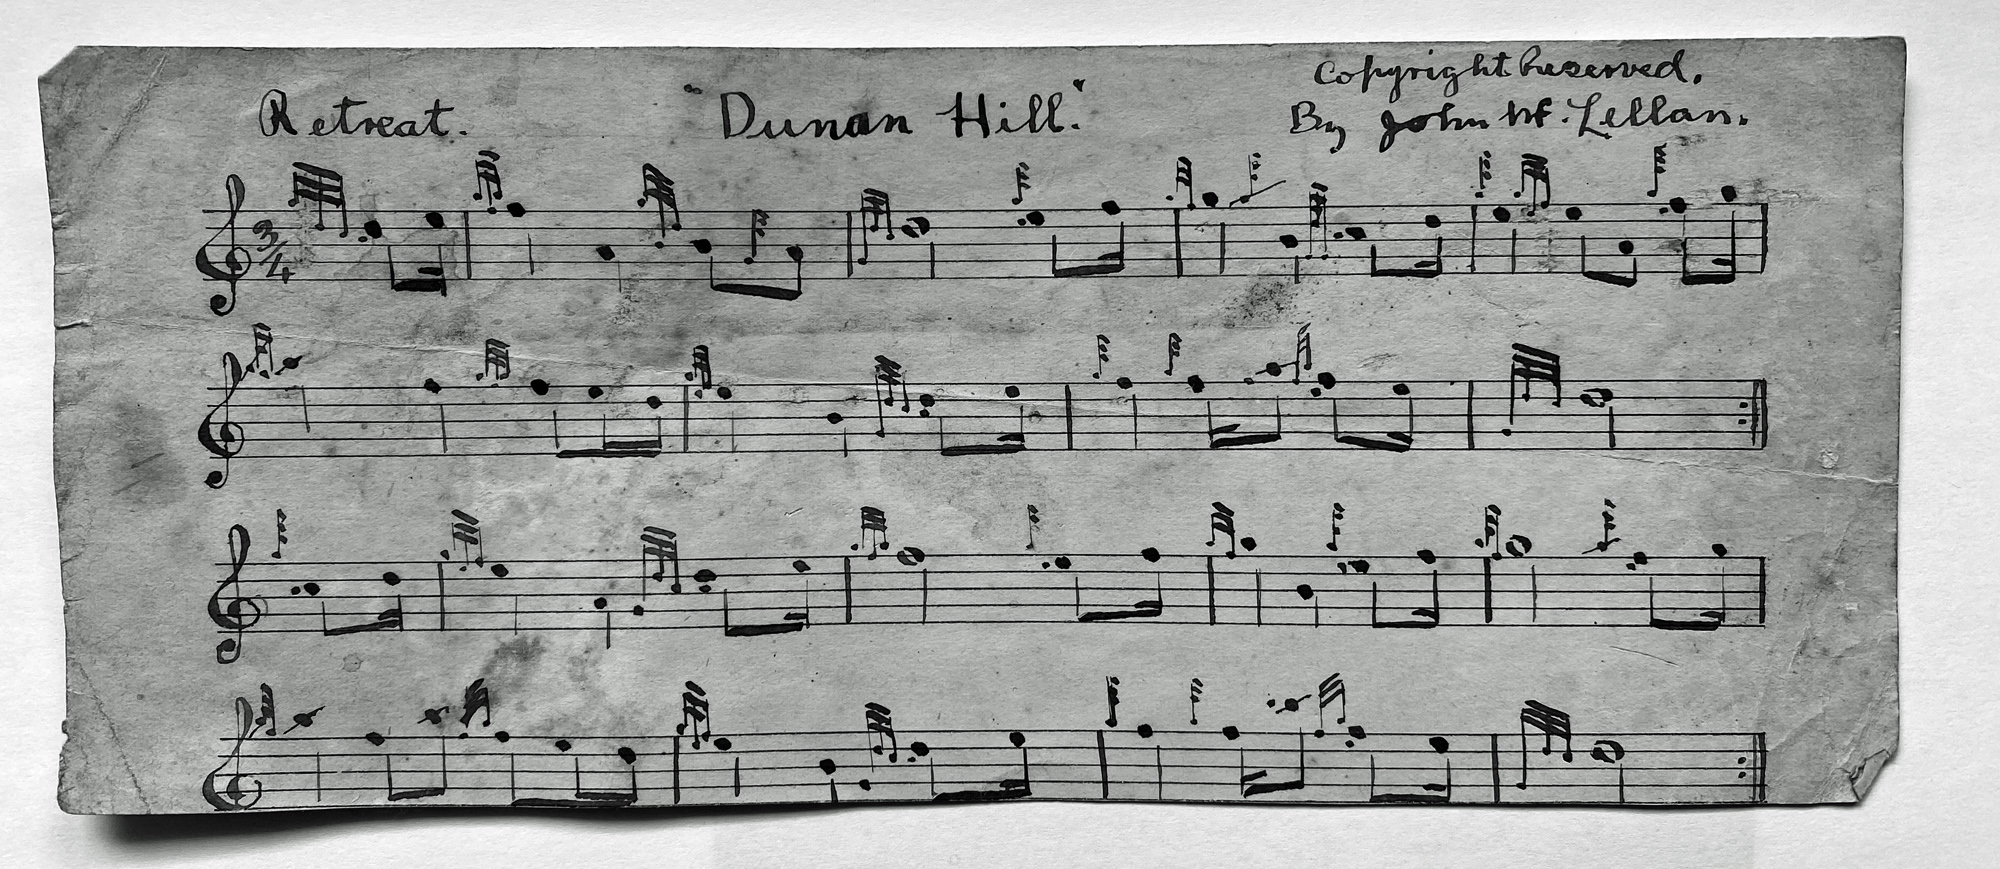 Copyright Reserved.
Retreat. "Dunan Hill."
By John Mc. Lellan.
3/4